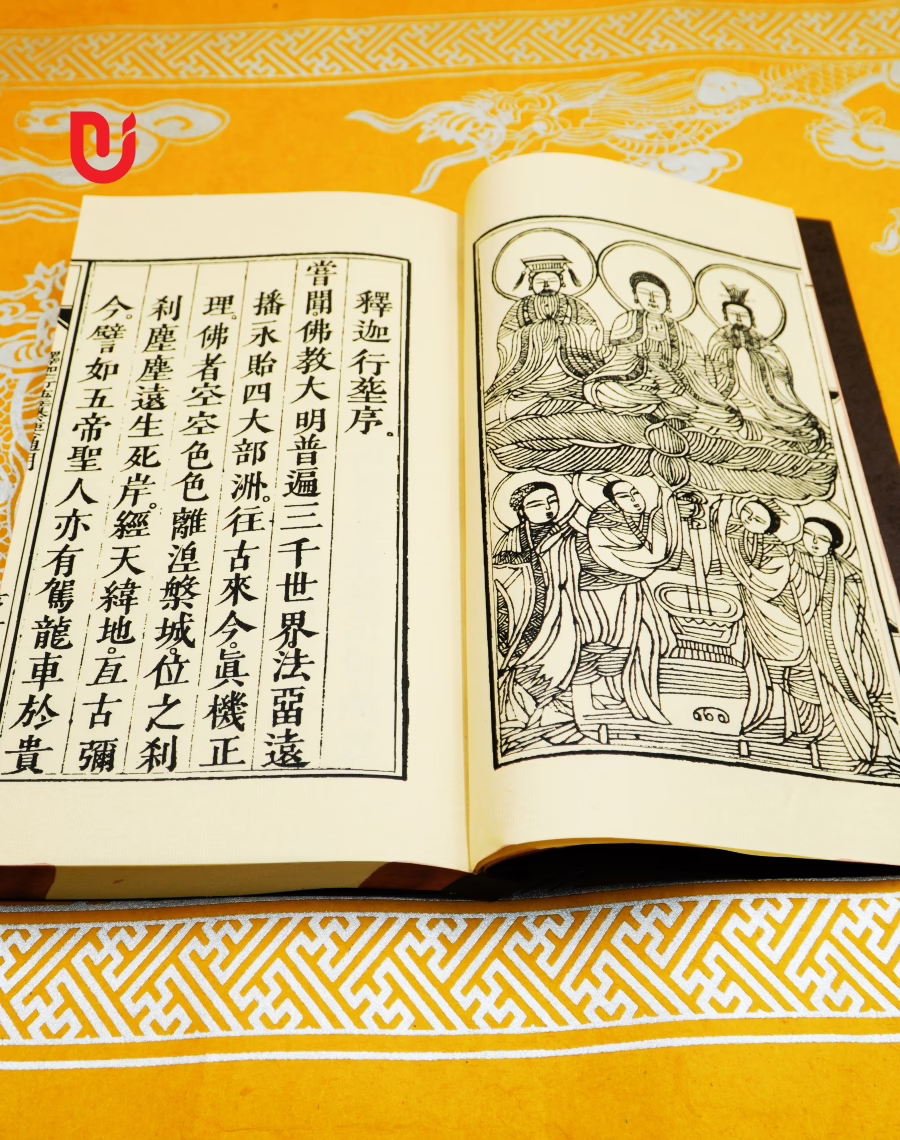 釋迦行序。
嘗聞。佛教大明普遍三千世界。法畱遠
播永貽四大部洲。往古來今。眞機正
理。佛者空空色色離湼槃城。位之刹
刹塵塵遠生死岸。經天緯地。亘古彌
今。譬如五帝聖人亦有駕龍車於貴